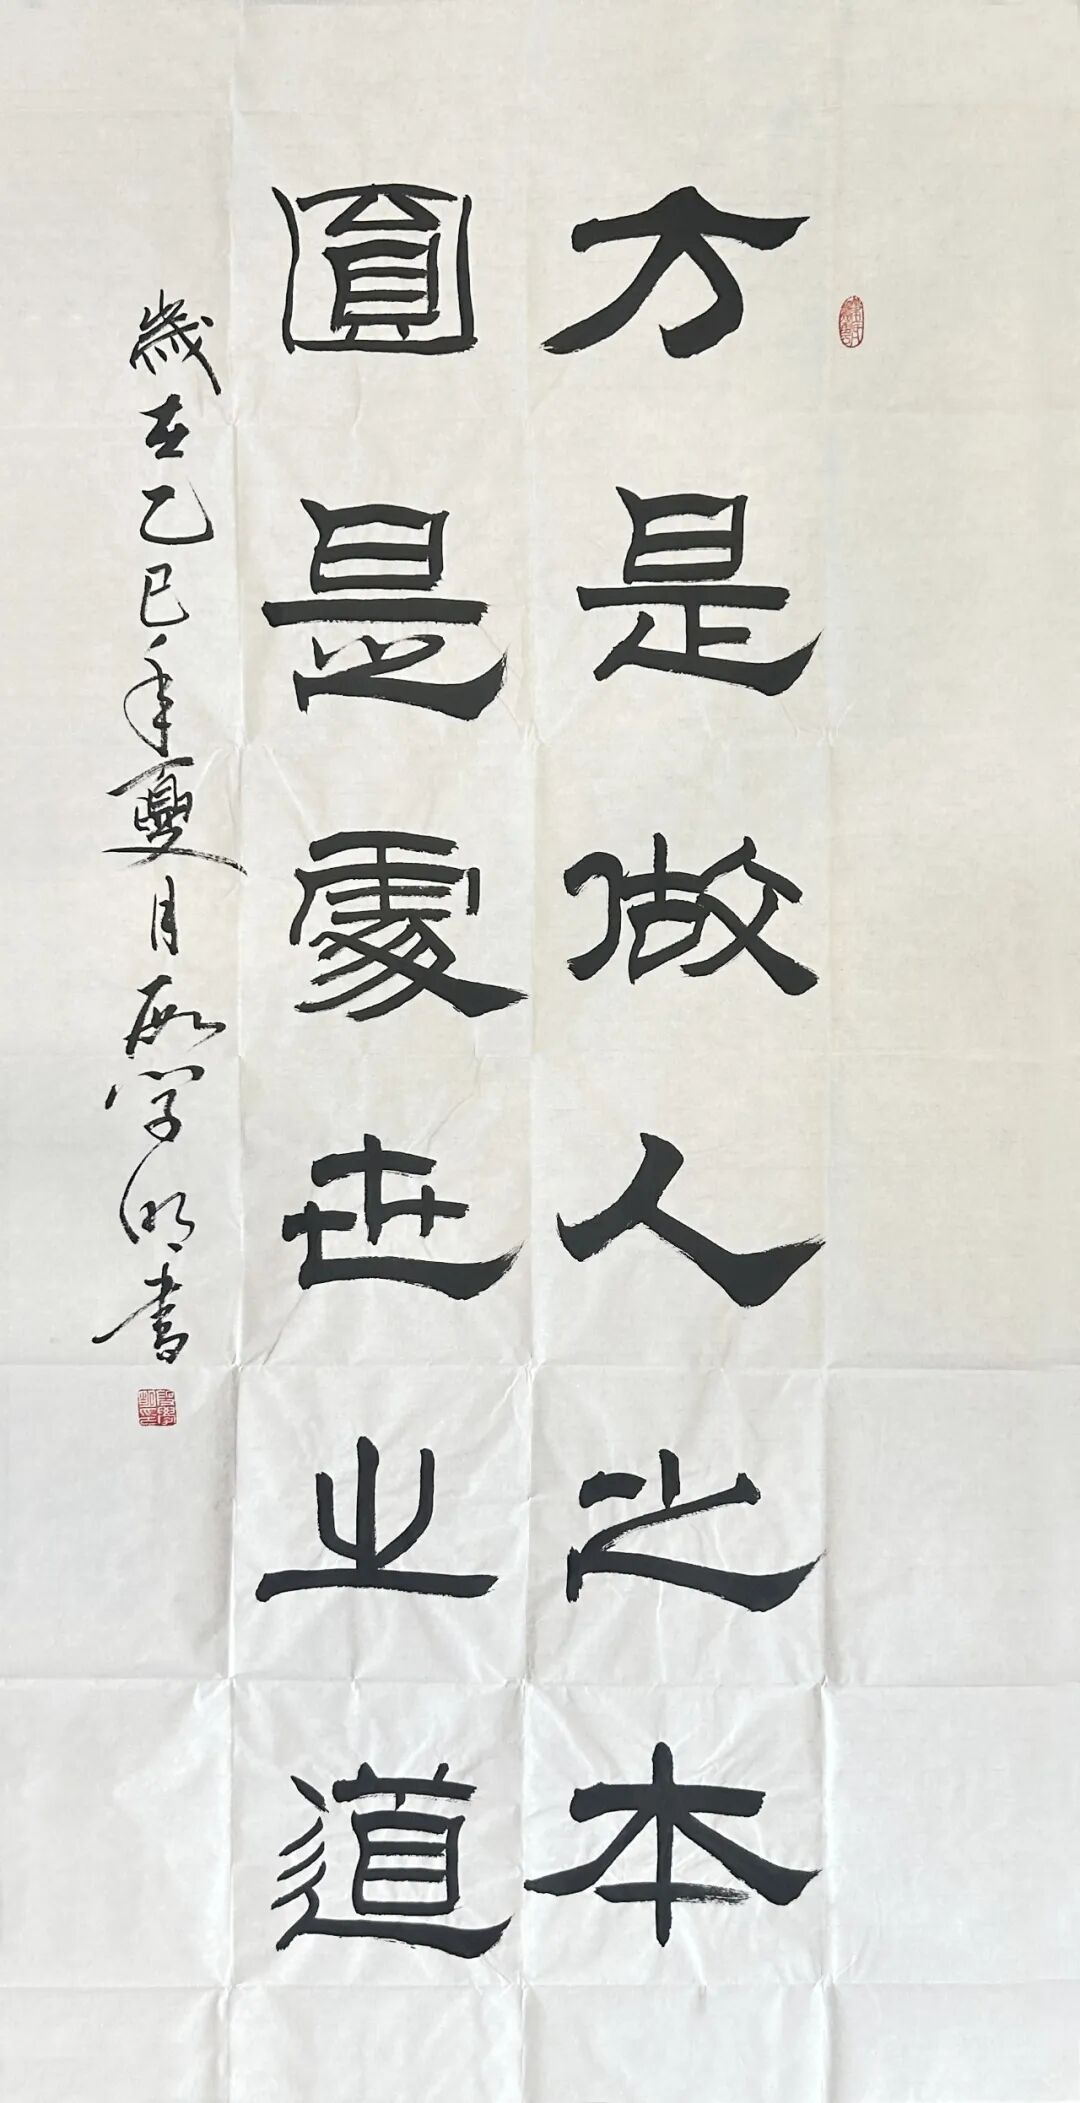 方是做人之本
圓是處世之道
歲在乙巳年夏月殷学明书